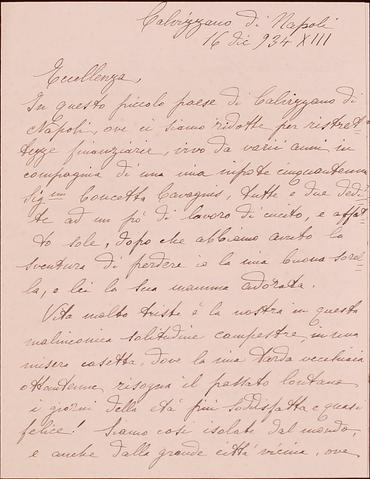 Calvizzano di Napoli
16 dic 934 XIII
Eccellenza,
In questo piccolo paese di Calvizzano di
Napoli, ove ci siamo ridotte per ristret-
tezze finanziarie, vivo da varii anni in
compagnia di una mia nipote cinquantenne
Sig.na Concetta Cavagnis, tutte e due dedi-
te ad un pò di lavoro di cucito, e affat-
to sole, dopo che abbiamo avuto la
sventura di perdere io la mia buona sorel-
la, e lei la sua mamma adorata.
Vita molto triste è la nostra in questa
malinconica solitudine campestre, in una
misera casetta, dove la mia tarda vecchiaia
ottantenne, risogna il passato lontano
i giorni della età più soddisfatta e quasi
felice! Siamo così isolate dal mondo,
e anche dalla grande città vicina, ove